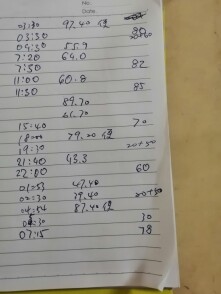 No.
Date
03:30 97.40
03:30 20+40
04:30 55.9
7:20 64.0
7:30 82
11:00 60.8
11:30 85
89.70
61.70
15:40 70
18:00 79.20
19:30 20+50
21:40 43.3
22:00 60
01:53 47.40
02:30 39.40 20+30
04:54 87.40
05:30 30
07:15 78